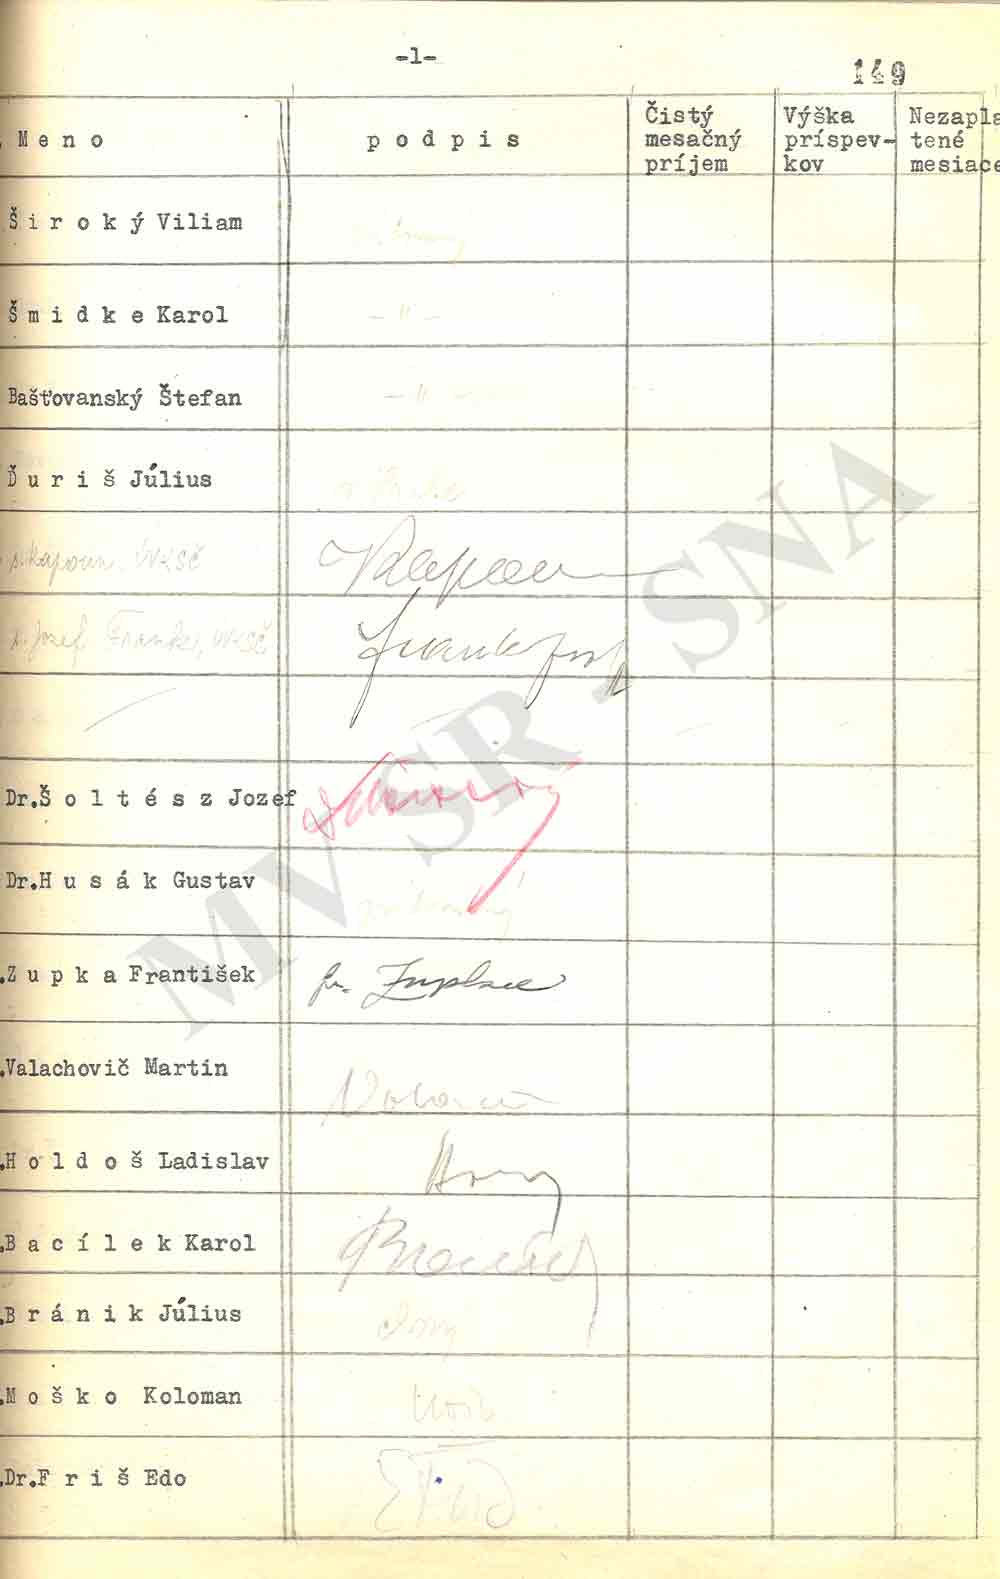 -1-
149
Meno
podpis
Čistý
mesačný
príjem
Výška
príspev-
kov
Nezapla
tené
mesiace
Široký Viliam
Šmidke Karol
- " -
Bašťovanský Štefan
- " -
Ďuriš Július
s. Kapoun, ÚVKSČ
Kapoun
s. Jozef Frank, ÚVKSČ
Frank Josef
Dr.Šoltész Jozef
Dr.Husák Gustav
prítomný
.Zupka František
Fr. Zupka
.Valachovič Martin
.Holdoš Ladislav
.Bacílek Karol
Bacílek
.Bránik Július
.Moško Koloman
.Dr.Friš Edo
MV SR - SNA